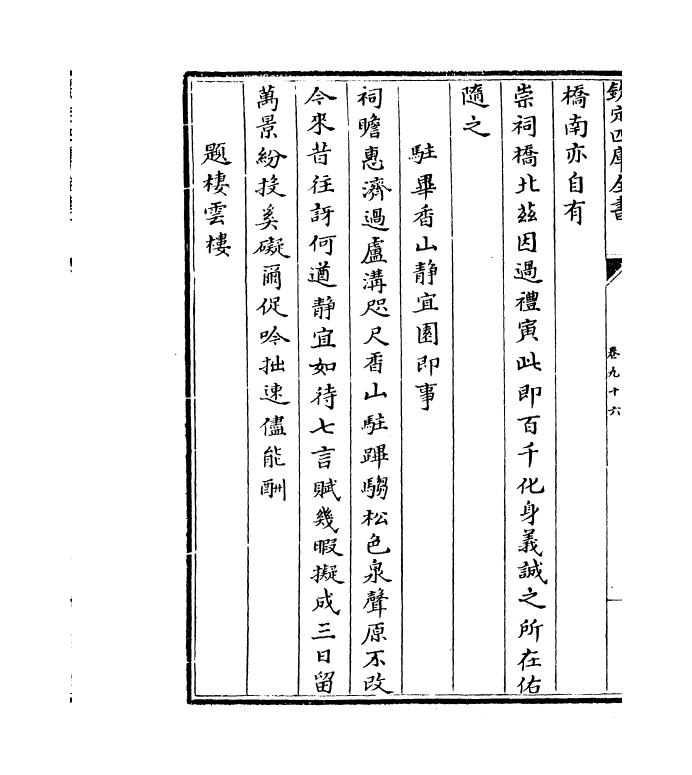 欽定四庫全書
卷九十六
橋南亦自有
崇祠橋北兹因過禮寅此即百千化身義誠之所在佑
隨之
駐畢香山靜宜園即事
祠瞻惠濟過盧溝咫尺香山駐蹕騶松色泉聲原不改
今來昔往訝何遒靜宜如待七言賦幾暇擬成三日留
萬景紛投奚礙爾促吟拙速儘能酬
題棲雲樓